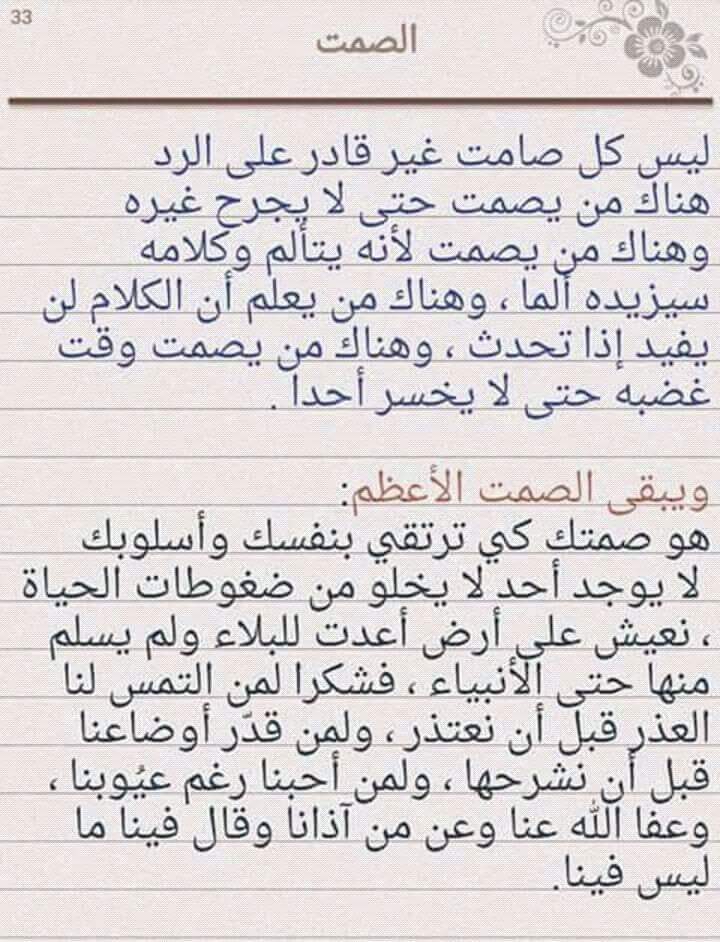 33
الصمت
ليس كل صامت غير قادر على الرد
هناك من يصمت حتى لا يجرح غيره
وهناك من يصمت لأنه يتألم وكلامه
سيزيده ألما ، وهناك من يعلم أن الكلام لن
يفيد إذا تحدث ، وهناك من يصمت وقت
غضبه حتى لا يخسر أحدا .
ويبقى الصمت الأعظم:
هو صمتك كي ترتقي بنفسك وأسلوبك
لا يوجد أحد لا يخلو من ضغوطات الحياة
، نعيش على أرض أعدت للبلاء ولم يسلم
منها حتى الأنبياء ، فشكرا لمن التمس لنا
العذر قبل أن نعتذر ، ولمن قدّر أوضاعنا
قبل أن نشرحها ، ولمن أحبنا رغم عيُوبنا ،
وعفا الله عنا وعن من آذانا وقال فينا ما
ليس فينا.